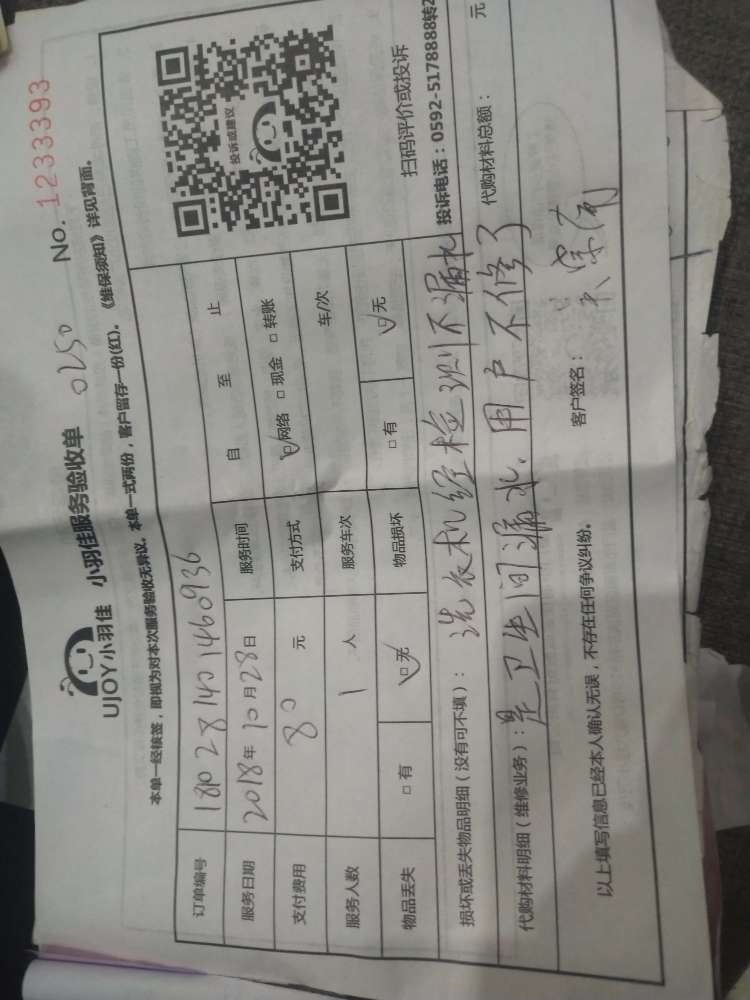 UJOY小羽佳 小羽佳服务验收单 0250 No. 1233393
本单一经核签，即视为对本次服务验收无异议。本单一式两份，客户留存一份(红)。《维保须知》详见背面。
订单编号 1810281401460936
服务日期 2018年10月28日 服务时间 自 至 止
支付费用 80 元 支付方式 ☑网络 □现金 □转账
服务人数 1 人 服务车次 车/次
物品丢失 □有 ☑无 物品损坏 □有 ☑无
投诉或建议
扫码评价或投诉
投诉电话：0592-5178888转2
损坏或丢失物品明细（没有可不填）： 洗衣机经检测不漏水
代购材料明细（维修业务）： 是卫生间漏水.用户不修了 代购材料总额： 元
以上填写信息已经本人确认无误，不存在任何争议纠纷。 客户签名：